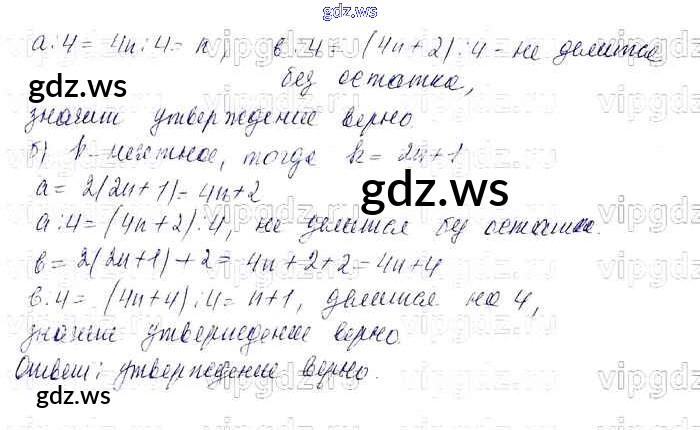 gdz.ws
a:4 = 4n:4 = n, в:4 = (4n+2):4 - не делится
без остатка,
значит утверждение верно.
б) k - нечетное, тогда k = 2n+1
a = 2(2n+1) = 4n+2
a:4 = (4n+2):4, не делится без остатка.
в = 2(2n+1)+2 = 4n+2+2 = 4n+4
в:4 = (4n+4):4 = n+1, делится на 4,
значит утверждение верно.
Ответ: утверждение верно.
gdz.ws
gdz.ws
gdz.ws
gdz.ws